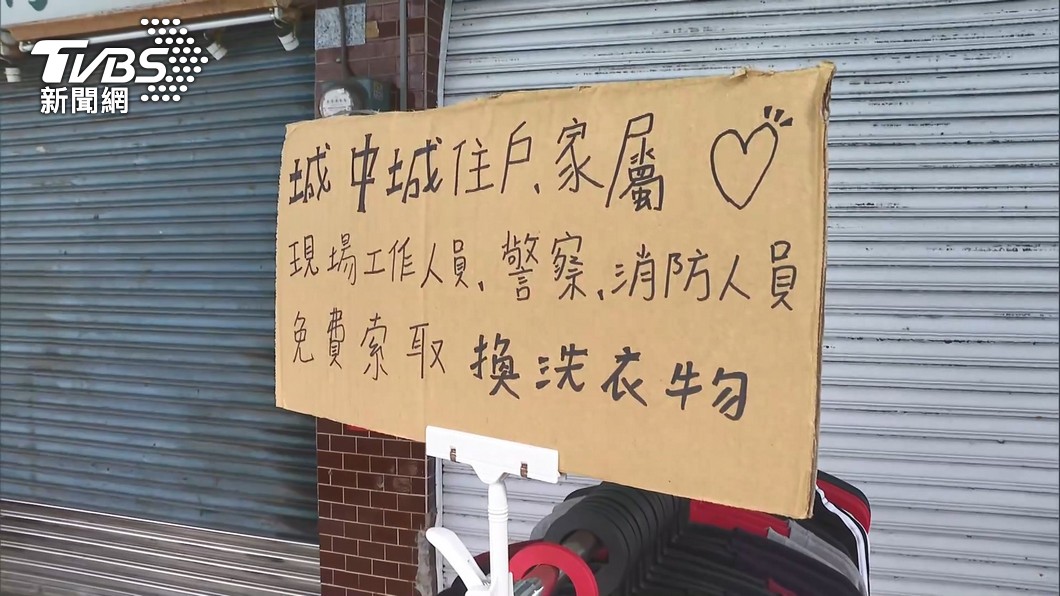 TVBS
新聞網
城中城住戶、家屬
現場工作人員、警察、消防人員
免費索取 換洗衣物